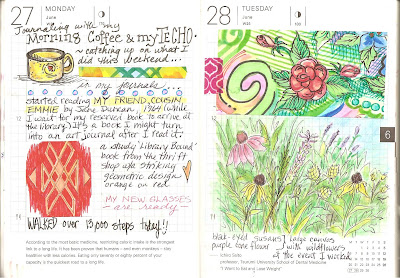 27 MONDAY
June
Journaling with my
Morning Coffee & my TECHO.
~ catching up on what I
did this weekend...
in my journals
started reading MY FRIEND, COUSIN
EMMIE by Jane Duncan, 1964 (while
I wait for my reserved book to arrive at
the library) It's a book I might turn
into an art journal after I read it.
a sturdy Library Bound
book from the thrift
shop w/a striking
geometric design
orange on red
MY NEW GLASSES
are ready
WALKED over 13,000 steps today!!
According to the most basic medicine, restricting calorie intake is the strongest
link to a long life. It has been proven that humans - and even monkeys - stay
healthier with less calories. Eating only seventy or eighty percent of your
capacity is the quickest road to a long life.
28 TUESDAY
June
6
black-eyed Susans } large canvas
purple cone flower } with wildflowers
at the event I worked
Ichiro Saito
professor, Tsurumi University School of Dental Medicine
"I Want to Eat and Lose Weight"